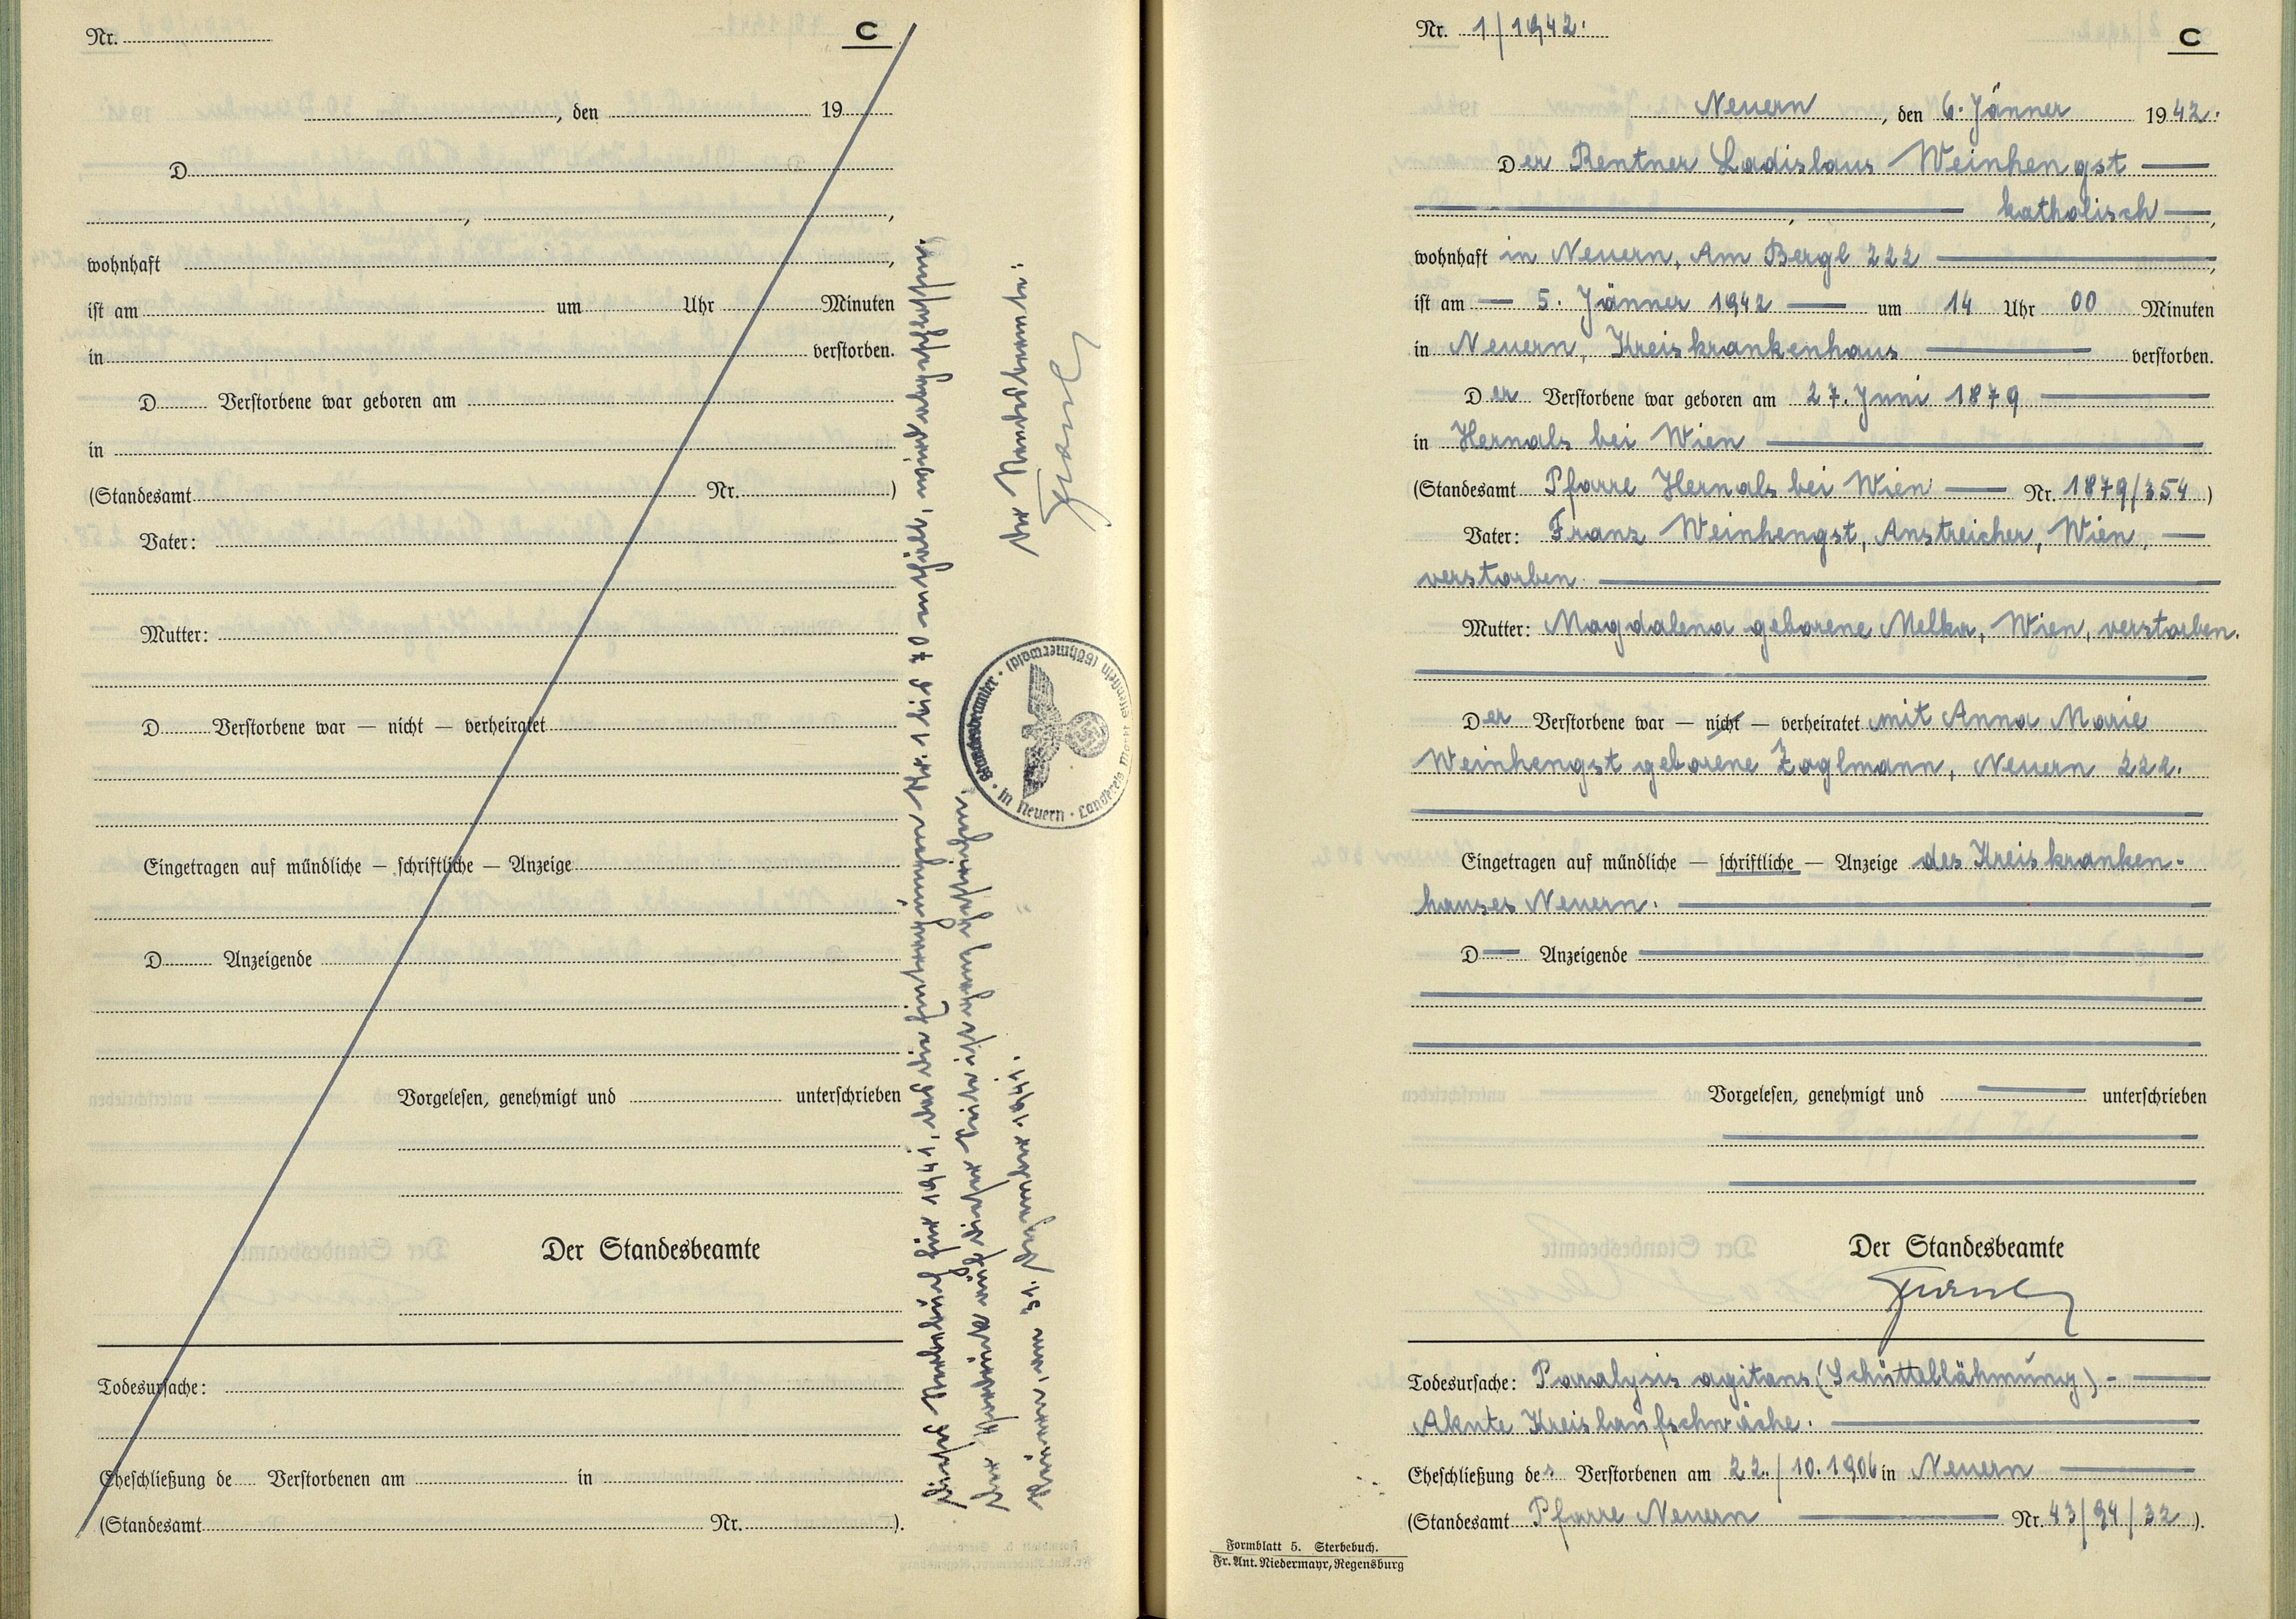 Nr.
C
, den 19
D
,
wohnhaft ,
ist am um Uhr Minuten
in verstorben.
D Verstorbene war geboren am
in
(Standesamt Nr. )
Vater:
Mutter:
D Verstorbene war — nicht — verheiratet
Eingetragen auf mündliche — schriftliche — Anzeige
D Anzeigende
Vorgelesen, genehmigt und unterschrieben
Der Standesbeamte
Todesursache:
Eheschließung de Verstorbenen am in
(Standesamt Nr. ).
Dieses Sterbebuch für 1941, das die Eintragungen Nr. 1 bis 70 enthält, wird abgeschlossen.
Der Vordruck auf dieser Seite ist gestrichen.
Neuern, am 31. Dezember 1941.
Der Standesbeamte:
Standesbeamter · in Neuern · Landkreis Markt Eisenstein (Böhmerwald) ·
Nr. 1/1942.
C
Neuern, den 6. Jänner 1942.
Der Rentner Ladislaus Weinhengst
, katholisch ,
wohnhaft in Neuern, Am Bergl 222 ,
ist am — 5. Jänner 1942 — um 14 Uhr 00 Minuten
in Neuern, Kreiskrankenhaus verstorben.
Der Verstorbene war geboren am 27. Juni 1879
in Hernals bei Wien
(Standesamt Pfarre Hernals bei Wien — Nr. 1879/354)
Vater: Franz Weinhengst, Anstreicher, Wien, —
verstorben.
Mutter: Magdalena geborene Melka, Wien, verstorben.
Der Verstorbene war — nicht — verheiratet mit Anna Marie
Weinhengst geborene Zoglmann, Neuern 222.
Eingetragen auf mündliche — schriftliche — Anzeige des Kreiskranken-
hauses Neuern.
D — Anzeigende
Vorgelesen, genehmigt und — unterschrieben
Der Standesbeamte
Todesursache: Paralysis agitans (Schüttellähmung) -
Akute Kreislaufschwäche.
Eheschließung des Verstorbenen am 22./10.1906 in Neuern
(Standesamt Pfarre Neuern — Nr. 43/94/32 ).
Formblatt 5. Sterbebuch.
Fr. Ant. Niedermayr, Regensburg